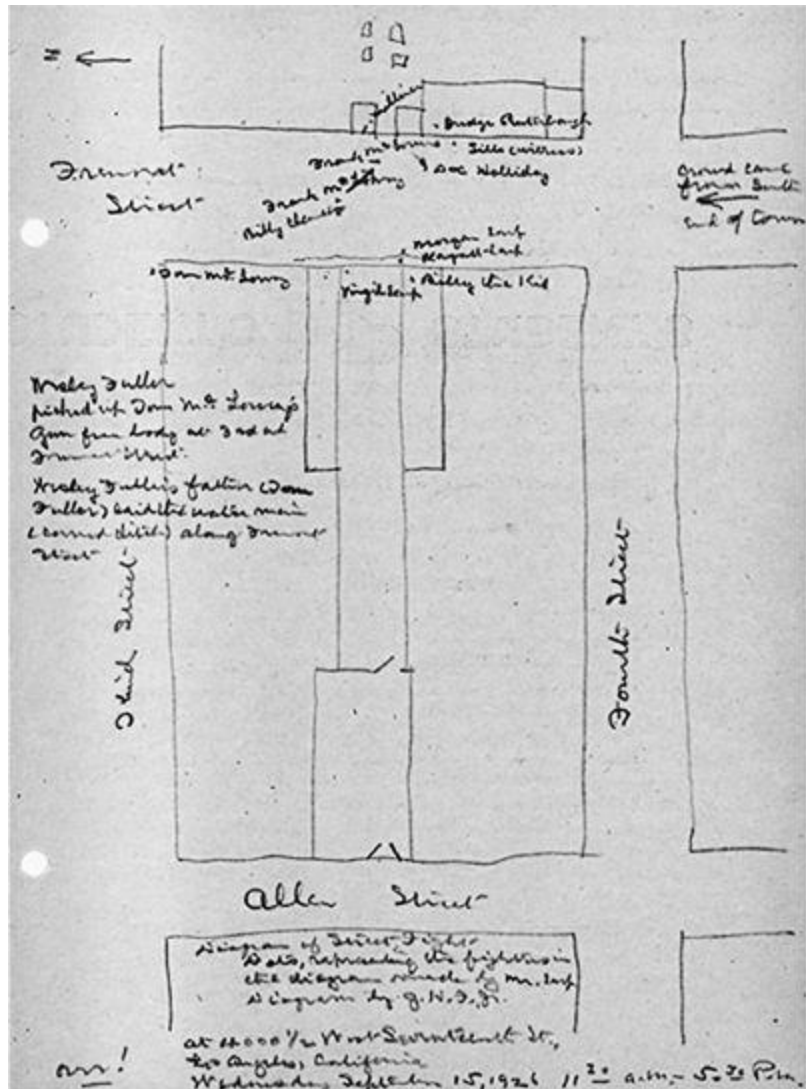 N
Fremont
Street
Frank McLowry
Frank
Billy Clanton
Judge
Sills (witness)
Doc Holliday
ground
from South
end of town
Morgan Earp
Wyatt Earp
Tom McLowry
Virgil Earp
Billy the Kid
Wesley Fuller
picked up Tom McLowry's
Gun from body at 3rd and
Fremont Street.
Wesley Fuller's father (
Fuller) water main
( ditch) along Fremont
Street
Third Street
Fourth Street
Allen Street
Diagram of Street Fight
Dots, representing the fighters in
the diagram made by Mr. Earp
Diagram by J.H.F. Jr.
at 4000 1/2 West Seventeenth St.,
Los Angeles, California
Wednesday September 15, 1926 11 30 a.m. - 5.30 P.m.